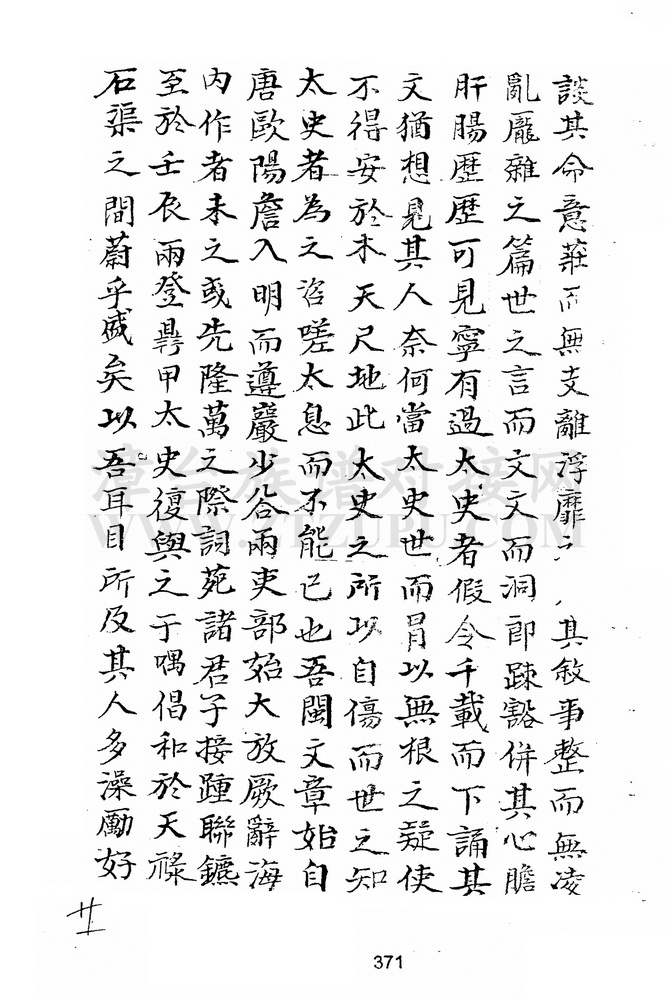 談其命意莊而無支離浮靡之其敘事整而無凌
亂厖雜之篇世之言而文文而洞郎踈豁併其心膽
肝腸歷歷可見寧有過太史者假令千載而下誦其
文猶想見其人奈何當太史世而冐以無根之疑使
不得安於木天尺地此太史之所以自傷而世之知
太史者為之咨嗟太息而不能已也吾閩文章始自
唐歐陽詹入明而遵巖少谷兩吏部始大放厥辭海
內作者未之或先隆萬之際詞苑諸君子接踵聯鑣
至於壬辰兩登鼎甲太史復與之于喁倡和於天祿
石渠之間蔚乎盛矣以吾耳目所及其人多澡勵好
廿一
371
漳台族谱对接网
WWW.ZTZUPU.COM